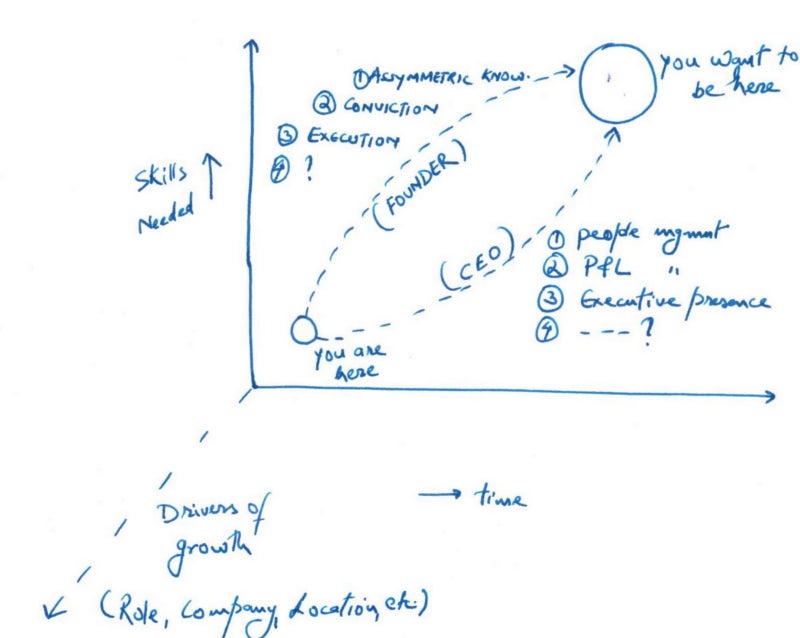 ① ASYMMETRIC KNOW.
② CONVICTION
③ EXECUTION
④ ?
you want to
be here
Skills ↑
Needed
(FOUNDER)
(CEO)
① people mgmnt
② P&L "
③ Executive presence
④ ----?
you are
here
Drivers of
growth
→ time
(Role, Company, Location, etc.)